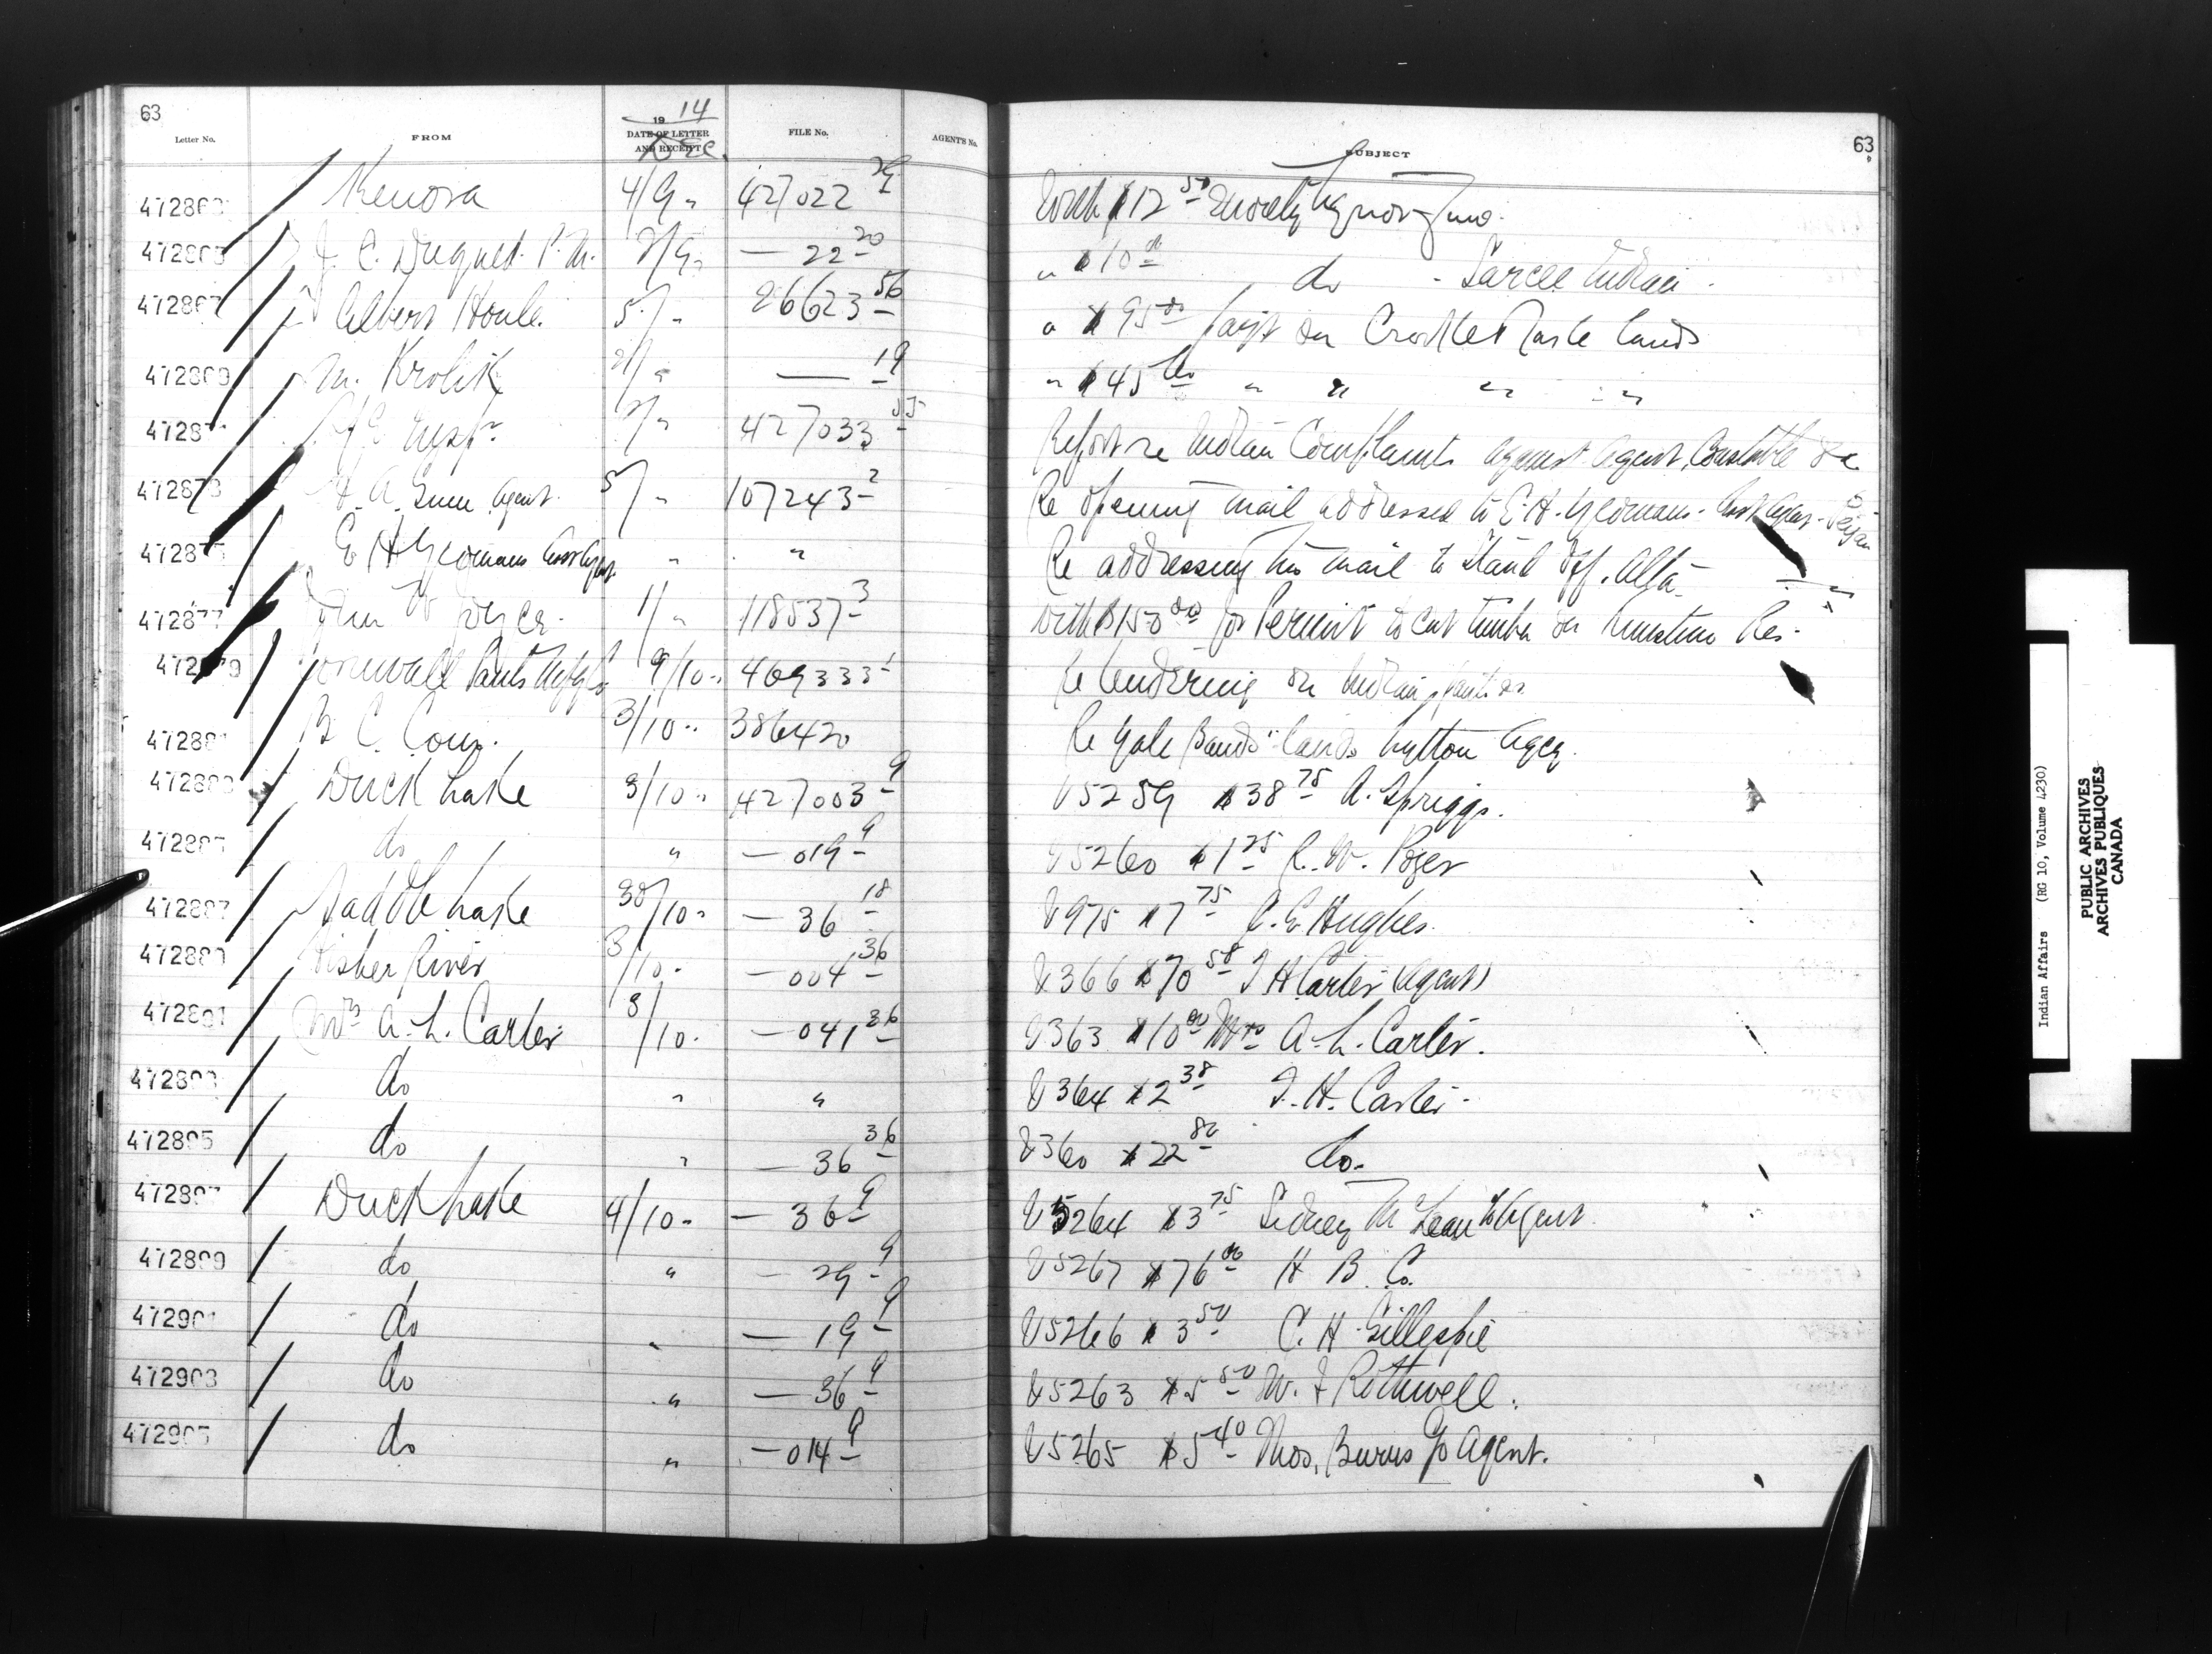 63
19 14
Letter No. FROM DATE OF LETTER AND RECEIPT FILE No. AGENT'S No.
Dec.
SUBJECT 63
Kenora 4/9 " 427022 With $12 50 moiety liquor fine.
J. C. P. M. — 22 20 " $10 00 do - Sarcee Indian -
Albert Houle 5/ " 26623 56 " $95 00 on lands
472869 M. Krolik " — 19 " $45 00 " " " " "
Insp. " 427033 Report re Indian Complaints against Agent, Constable &c
472873 Agent. 5/ " 107243 2 Re opening mail addressed to E. H. Yeomans - Peigan
E H Yeomans " " Re addressing his mail to Stand Off. Alta
472877 John Joyce 1/ " 118537 3 With $150 00 for Permit to cut timber on Res.
472879 Cornwall Pants 9/10 " 469333 1 Re tendering on Indian panties
472881 B. C. Com. 3/10 " 386420 Re Yale Bands lands Lytton Agcy.
Duck Lake 3/10 " 427003 9 V5259 $38 75 A. Spriggs.
do " — 019 9 V5260 $1 25 R. W.
472887 Saddle Lake 30/10 " — 36 18 V975 $7 75 C. E. Hughes.
472889 Fisher River 3/10 - — 004 36 V366 $70 58 T H Carter (Agent)
472891 Mrs A. L. Carter 3/10 - — 041 36 V363 $10 00 Mrs A. L. Carter.
472893 do " " V364 $2 38 T. H. Carter -
472895 do " — 36 36 V360 $22 80 do -
472897 Duck Lake 4/10 - — 36 9 V5264 $3 75 Sidney McLean Agent
472899 do " — 29 9 V5267 $76 00 H B Co.
472901 do " — 19 9 V5266 $3 50 C. H. Gillespie
472903 do " — 36 9 V5263 $5 50 W. J Rothwell.
472905 do " — 014 9 V5265 $5 40 Thos. Burns c/o Agent.
Indian Affairs (RG 10, Volume 4230)
PUBLIC ARCHIVES
ARCHIVES PUBLIQUES
CANADA